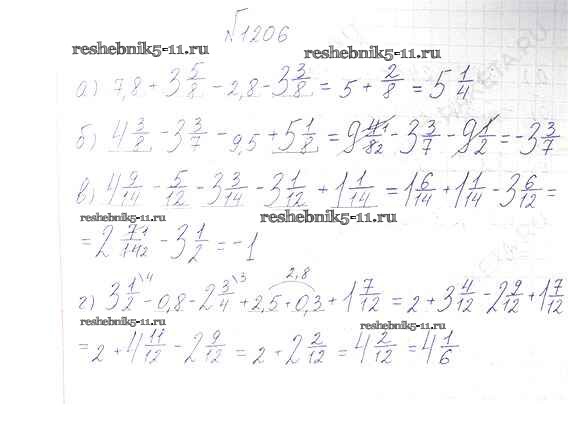 №1206
reshebnik5-11.ru reshebnik5-11.ru
а) 7,8 + 3 5/8 - 2,8 - 3 3/8 = 5 + 2/8 = 5 1/4
б) 4 3/8 - 3 3/7 - 9,5 + 5 1/8 = 9 4/8 - 3 3/7 - 9 1/2 = -3 3/7
в) 4 9/14 - 5/12 - 3 3/14 - 3 1/12 + 1 1/14 = 1 6/14 + 1 1/14 - 3 6/12 =
reshebnik5-11.ru reshebnik5-11.ru
= 2 7/14 - 3 1/2 = -1
2,8
г) 3 1/2 - 0,8 - 2 3/4 + 2,5 + 0,3 + 1 7/12 = 2 + 3 4/12 - 2 9/12 + 1 7/12
reshebnik5-11.ru reshebnik5-11.ru
= 2 + 4 11/12 - 2 9/12 = 2 + 2 2/12 = 4 2/12 = 4 1/6